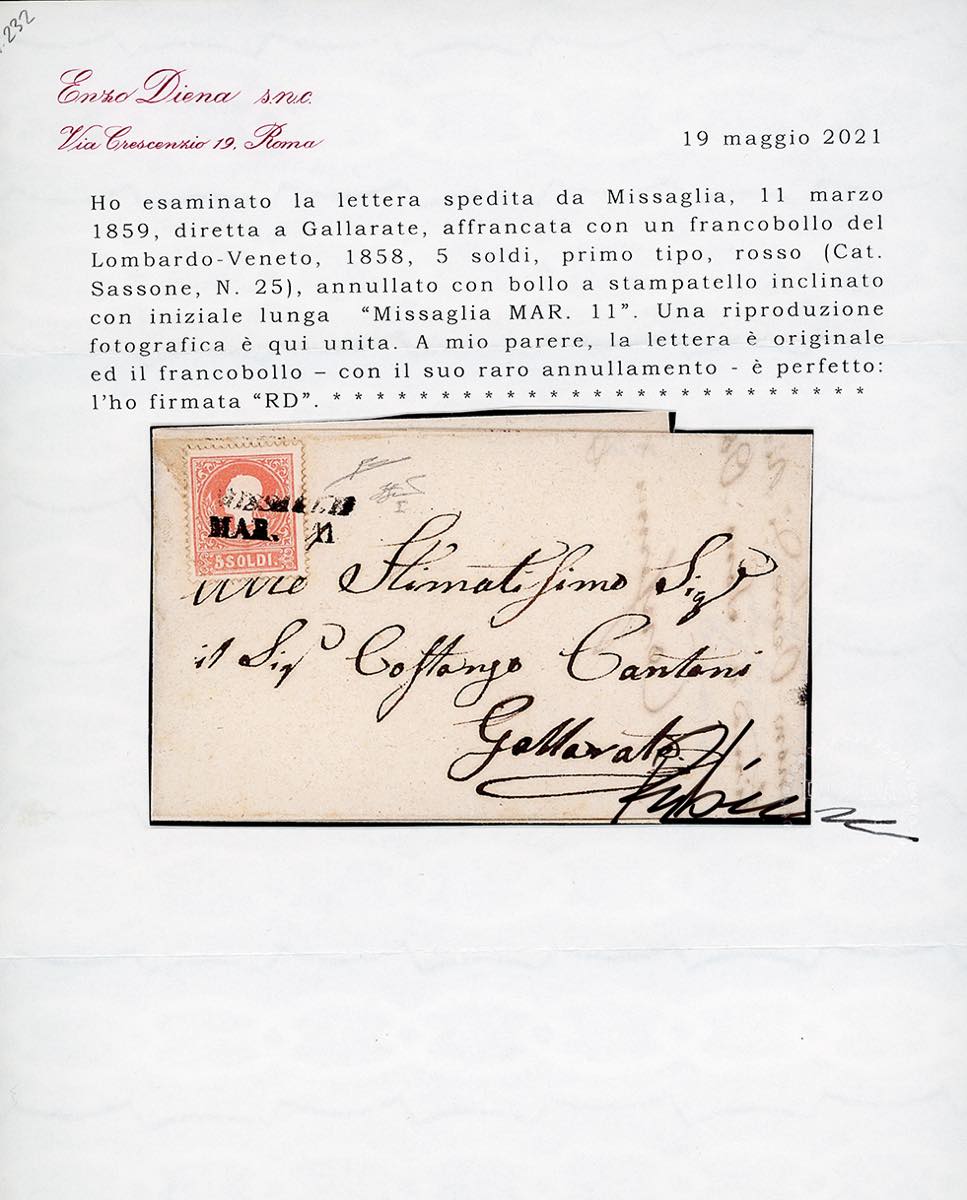 232
Enzo Diena s.n.c.
Via Crescenzio 19, Roma
19 maggio 2021
Ho esaminato la lettera spedita da Missaglia, 11 marzo
1859, diretta a Gallarate, affrancata con un francobollo del
Lombardo-Veneto, 1858, 5 soldi, primo tipo, rosso (Cat.
Sassone, N. 25), annullato con bollo a stampatello inclinato
con iniziale lunga “Missaglia MAR. 11”. Una riproduzione
fotografica è qui unita. A mio parere, la lettera è originale
ed il francobollo – con il suo raro annullamento - è perfetto:
l’ho firmata “RD”. * * * * * * * * * * * * * * * * * * *
MISSAGLIA
MAR. 11
5 SOLDI.
Stimatissimo Sigr
il Sigr Costanzo Cantoni
Gallarate